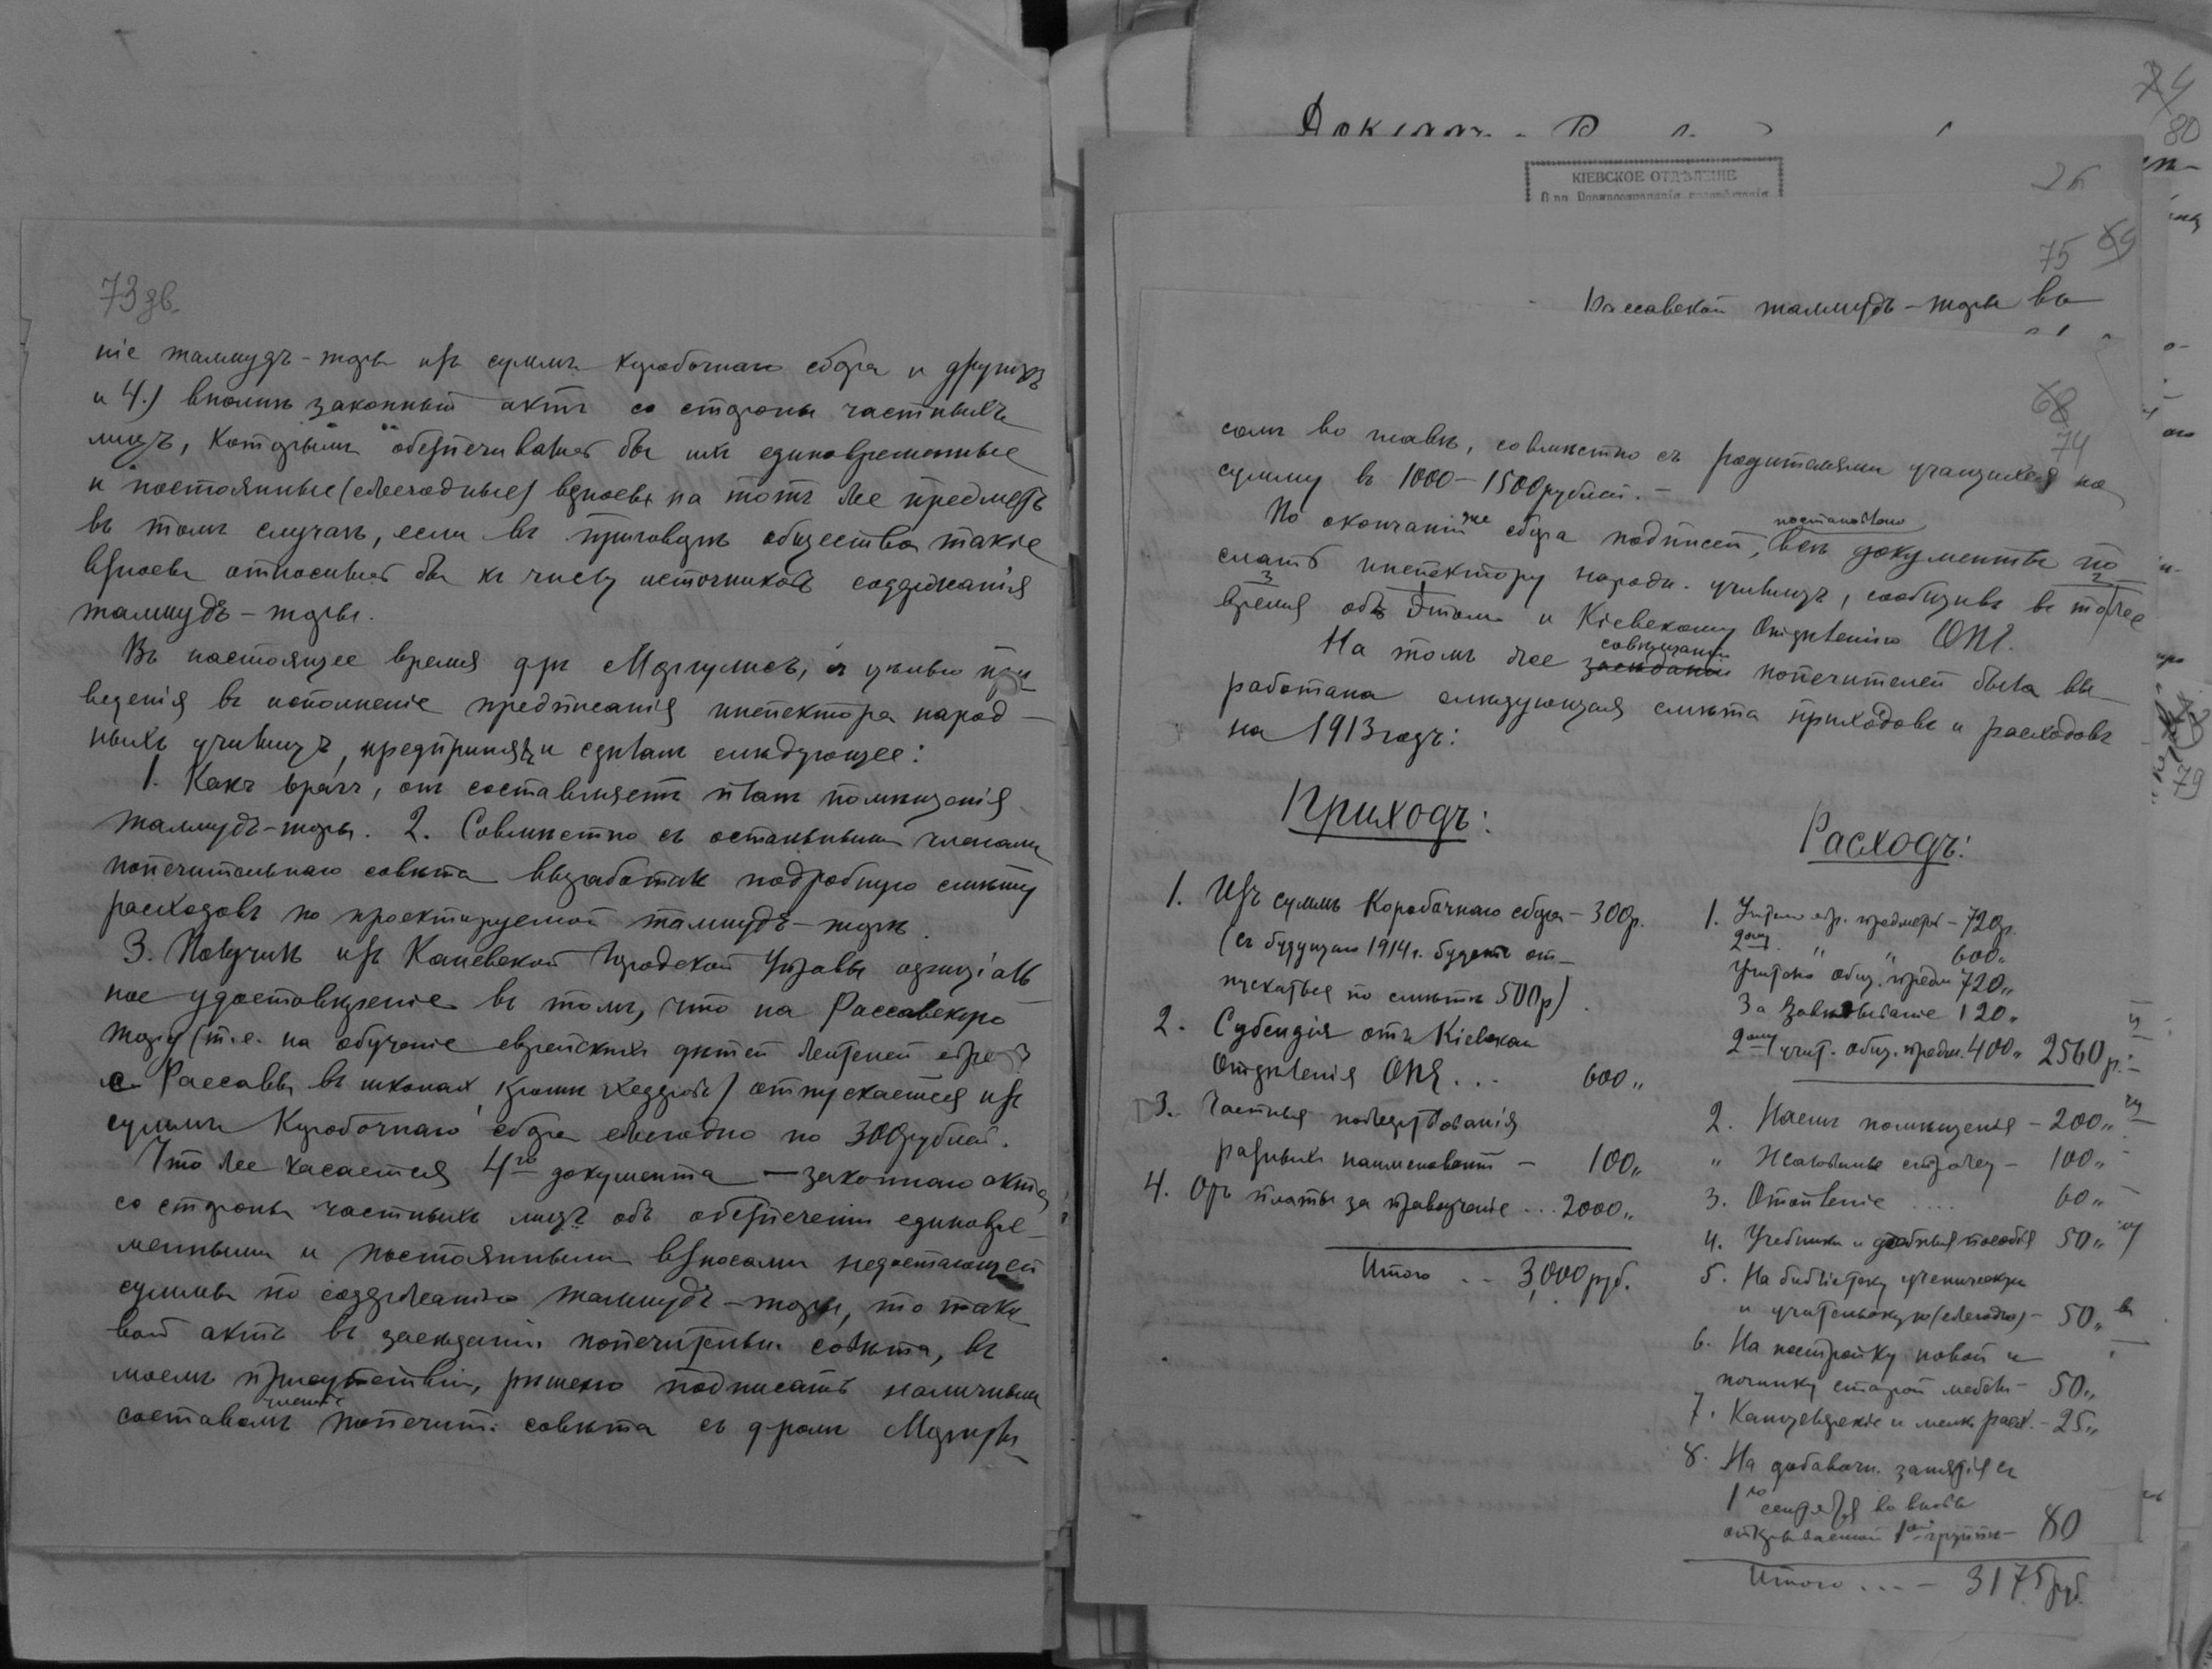 73 зв.
ніе талмудъ-торы изъ суммъ коробочнаго сбора и другихъ
и 4.) вполнѣ законный актъ со стороны частныхъ
лицъ, которымъ обезпечивались бы ихъ единовременные
и постоянные (ежегодные) взносы на тотъ же предметъ
въ томъ случаѣ, если въ приговорѣ общества такіе
взносы относились бы къ числу источниковъ содержанія
талмудъ-торы.
Въ настоящее время д-ръ Маргулисъ, съ цѣлью при
веденія въ исполненіе предписанія инспектора народ-
ныхъ училищъ, предпринялъ и сдѣлалъ слѣдующее:
1. Какъ врачъ, онъ составляетъ планъ помѣщенія
талмудъ-торы. 2. Совмѣстно съ остальными членами
попечительнаго совѣта выработалъ подробную смѣту
расходовъ по проектируемой талмудъ-торѣ.
3. Получилъ изъ Каневской Городской Управы оффиціаль
ное удостовѣреніе въ томъ, что на Россавскую
тору (т.е. на обученіе еврейскихъ дѣтей жителей евреевъ
с. Россавы въ школахъ, кромѣ хедеровъ) отпускается изъ
суммъ Коробочнаго сбора ежегодно по 300 рублей.
Что же касается 4го документа — законнаго акта
со стороны частныхъ лицъ объ обезпеченіи единовре-
менными и постоянными взносами недостающей
суммы по содержанію талмудъ-торы, то тако
вой актъ въ засѣданіи попечительн. совѣта, въ
моемъ присутствіи, рѣшено подписать наличнымъ
составомъ членовъ попечит. совѣта съ д-ромъ Маргули
КІЕВСКОЕ ОТДѢЛЕНІЕ
26
74
80
75 69
Россавской талмудъ-торы въ
68
74
сомъ во главѣ, совмѣстно съ родителями учащихся на
сумму въ 1000-1500 рублей.-
По окончаніи же сбора подписей, постановлено всѣ документы по
слать инспектору народн. училищъ, сообщивъ въ то же
время объ этомъ и Кіевскому Отдѣленію ОПЕ.
На томъ же засѣданіи совѣщаніи попечителей была вы-
работана слѣдующая смѣта приходовъ и расходовъ
на 1913 годъ:
Приходъ:
1. Изъ суммъ Коробочнаго сбора - 300 р.
(съ будущаго 1914 г. будетъ от-
пускаться по смѣтѣ 500 р)
2. Субсидія отъ Кіевскаго
Отдѣленія ОПЕ... 600 „
3. Частныя пожертвованія
разныхъ наименованій - 100 „
4. Отъ платы за правоученіе... 2000 „
Итого .. 3,000 руб.
Расходъ:
1. Учителю евр. предметовъ - 720 р.
2ому „ „ 600 „
Учителю общ. предм 720 „
За завѣдываніе 120 „
2ому учит. общ. предм. 400 „ 2560 р.
2. Наемъ помѣщенія - 200 „
„ Жалованье сторожу - 100 „
3. Отопленіе .... 60 „
4. Учебники и учебныя пособія 50 „
5. На библіотеку ученическую
и учительскую (ежегодно) - 50 „
6. На постройку новой и
починку старой мебели - 50 „
7. Канцелярскіе и мелк. расх. - 25 „
8. На добавочн. занятія съ
1го сентября во вновь
открываемой 1ой группѣ - 80
Итого ... - 3175 руб.
79